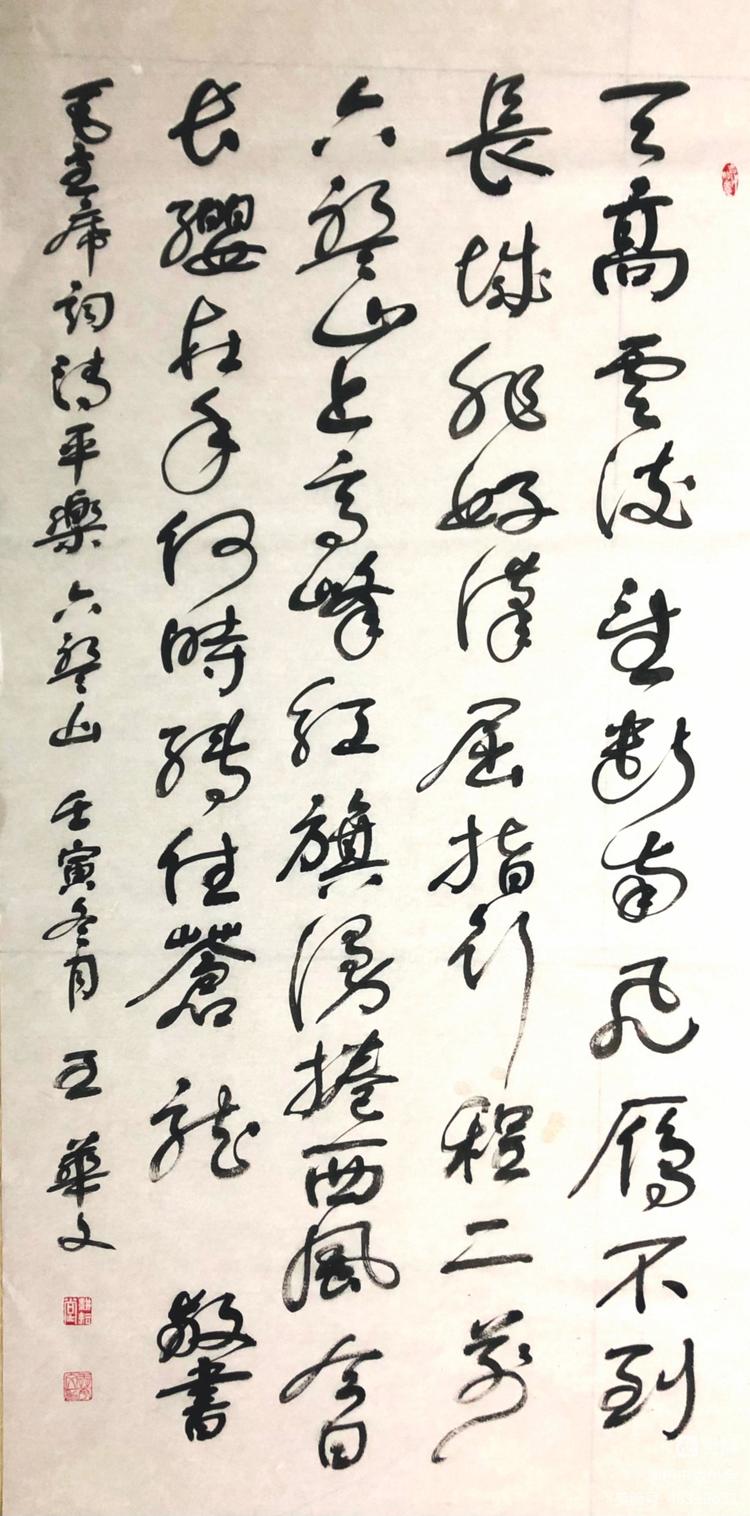 天高雲淡望斷南飛雁不到
長城非好漢屈指行程二萬
六盤山上高峰紅旗漫捲西風今日
长纓在手何時縛住蒼龍 敬書
毛主席詞清平樂六盤山 壬寅冬月 王華文